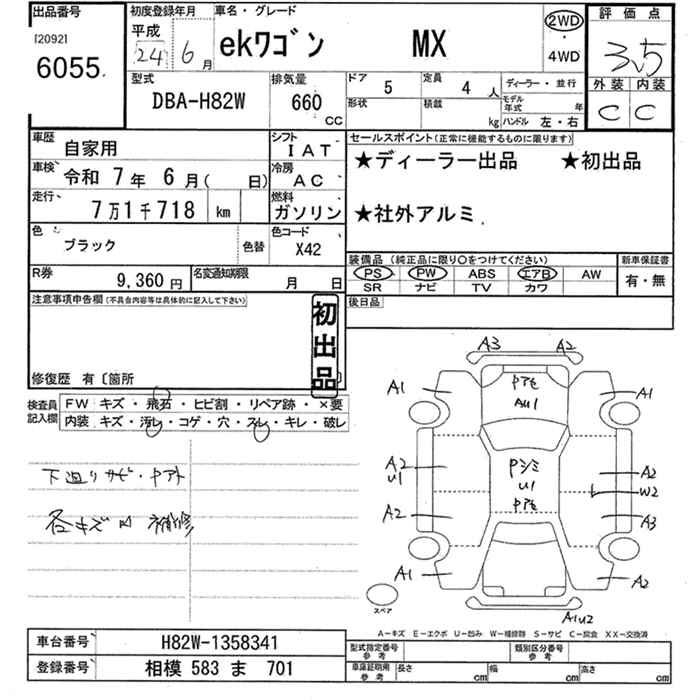 出品番号 初度登録年月 車名・グレード 評価点
[20921
6055
平成 24 年 6 月
ekワゴン MX
2WD ・ 4WD
3.5
型式 排気量 ドア 定員 ディーラー・並行 外装 内装
DBA-H82W 660 CC 5 4 人 C C
形状 積載 kg モデル年式 年
ハンドル 左・右
車歴 自家用 シフト IAT
車検 令和 7 年 6 月( 日) 冷房 AC
走行 7万1千718 km 燃料 ガソリン
色 ブラック 色替 色コード X42
R券 9,360 円 名変通知期限 月 日
セールスポイント(正常に機能するものに限ります)
★ディーラー出品 ★初出品
★社外アルミ
装備品(純正品に限り○をつけてください) 新車保証書
PS PW ABS エアB AW 有・無
SR ナビ TV カワ
後日品
注意事項申告欄(不具合内容等は具体的に記入して下さい)
初出品
修復歴 有〔箇所 〕
検査員記入欄 FW キズ・飛石・ヒビ割・リペア跡・×要
内装 キズ・汚レ・コゲ・穴・スレ・キレ・破レ
下廻りサビ・
各キズ凹 補修
A3 A2
A1 A1
A1
U1
A2 U1 A2
W2
A2 A3
A1 A2
A1U2
スペア
A−キズ E−エクボ U−凹み W−補修跡 S−サビ C−腐食 XX−交換済
車台番号 H82W-1358341
登録番号 相模 583 ま 701
型式指定番号 参考 類別区分番号 参考
車庫証明用 参考 長さ cm 幅 cm 高さ cm